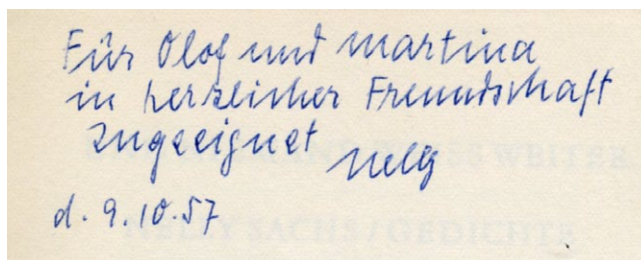 Für Olof und Martina
in herzlicher Freundschaft
zugeeignet Nelly
d. 9.10.57
WEITER
NELLY SACHS / GEDICHTE